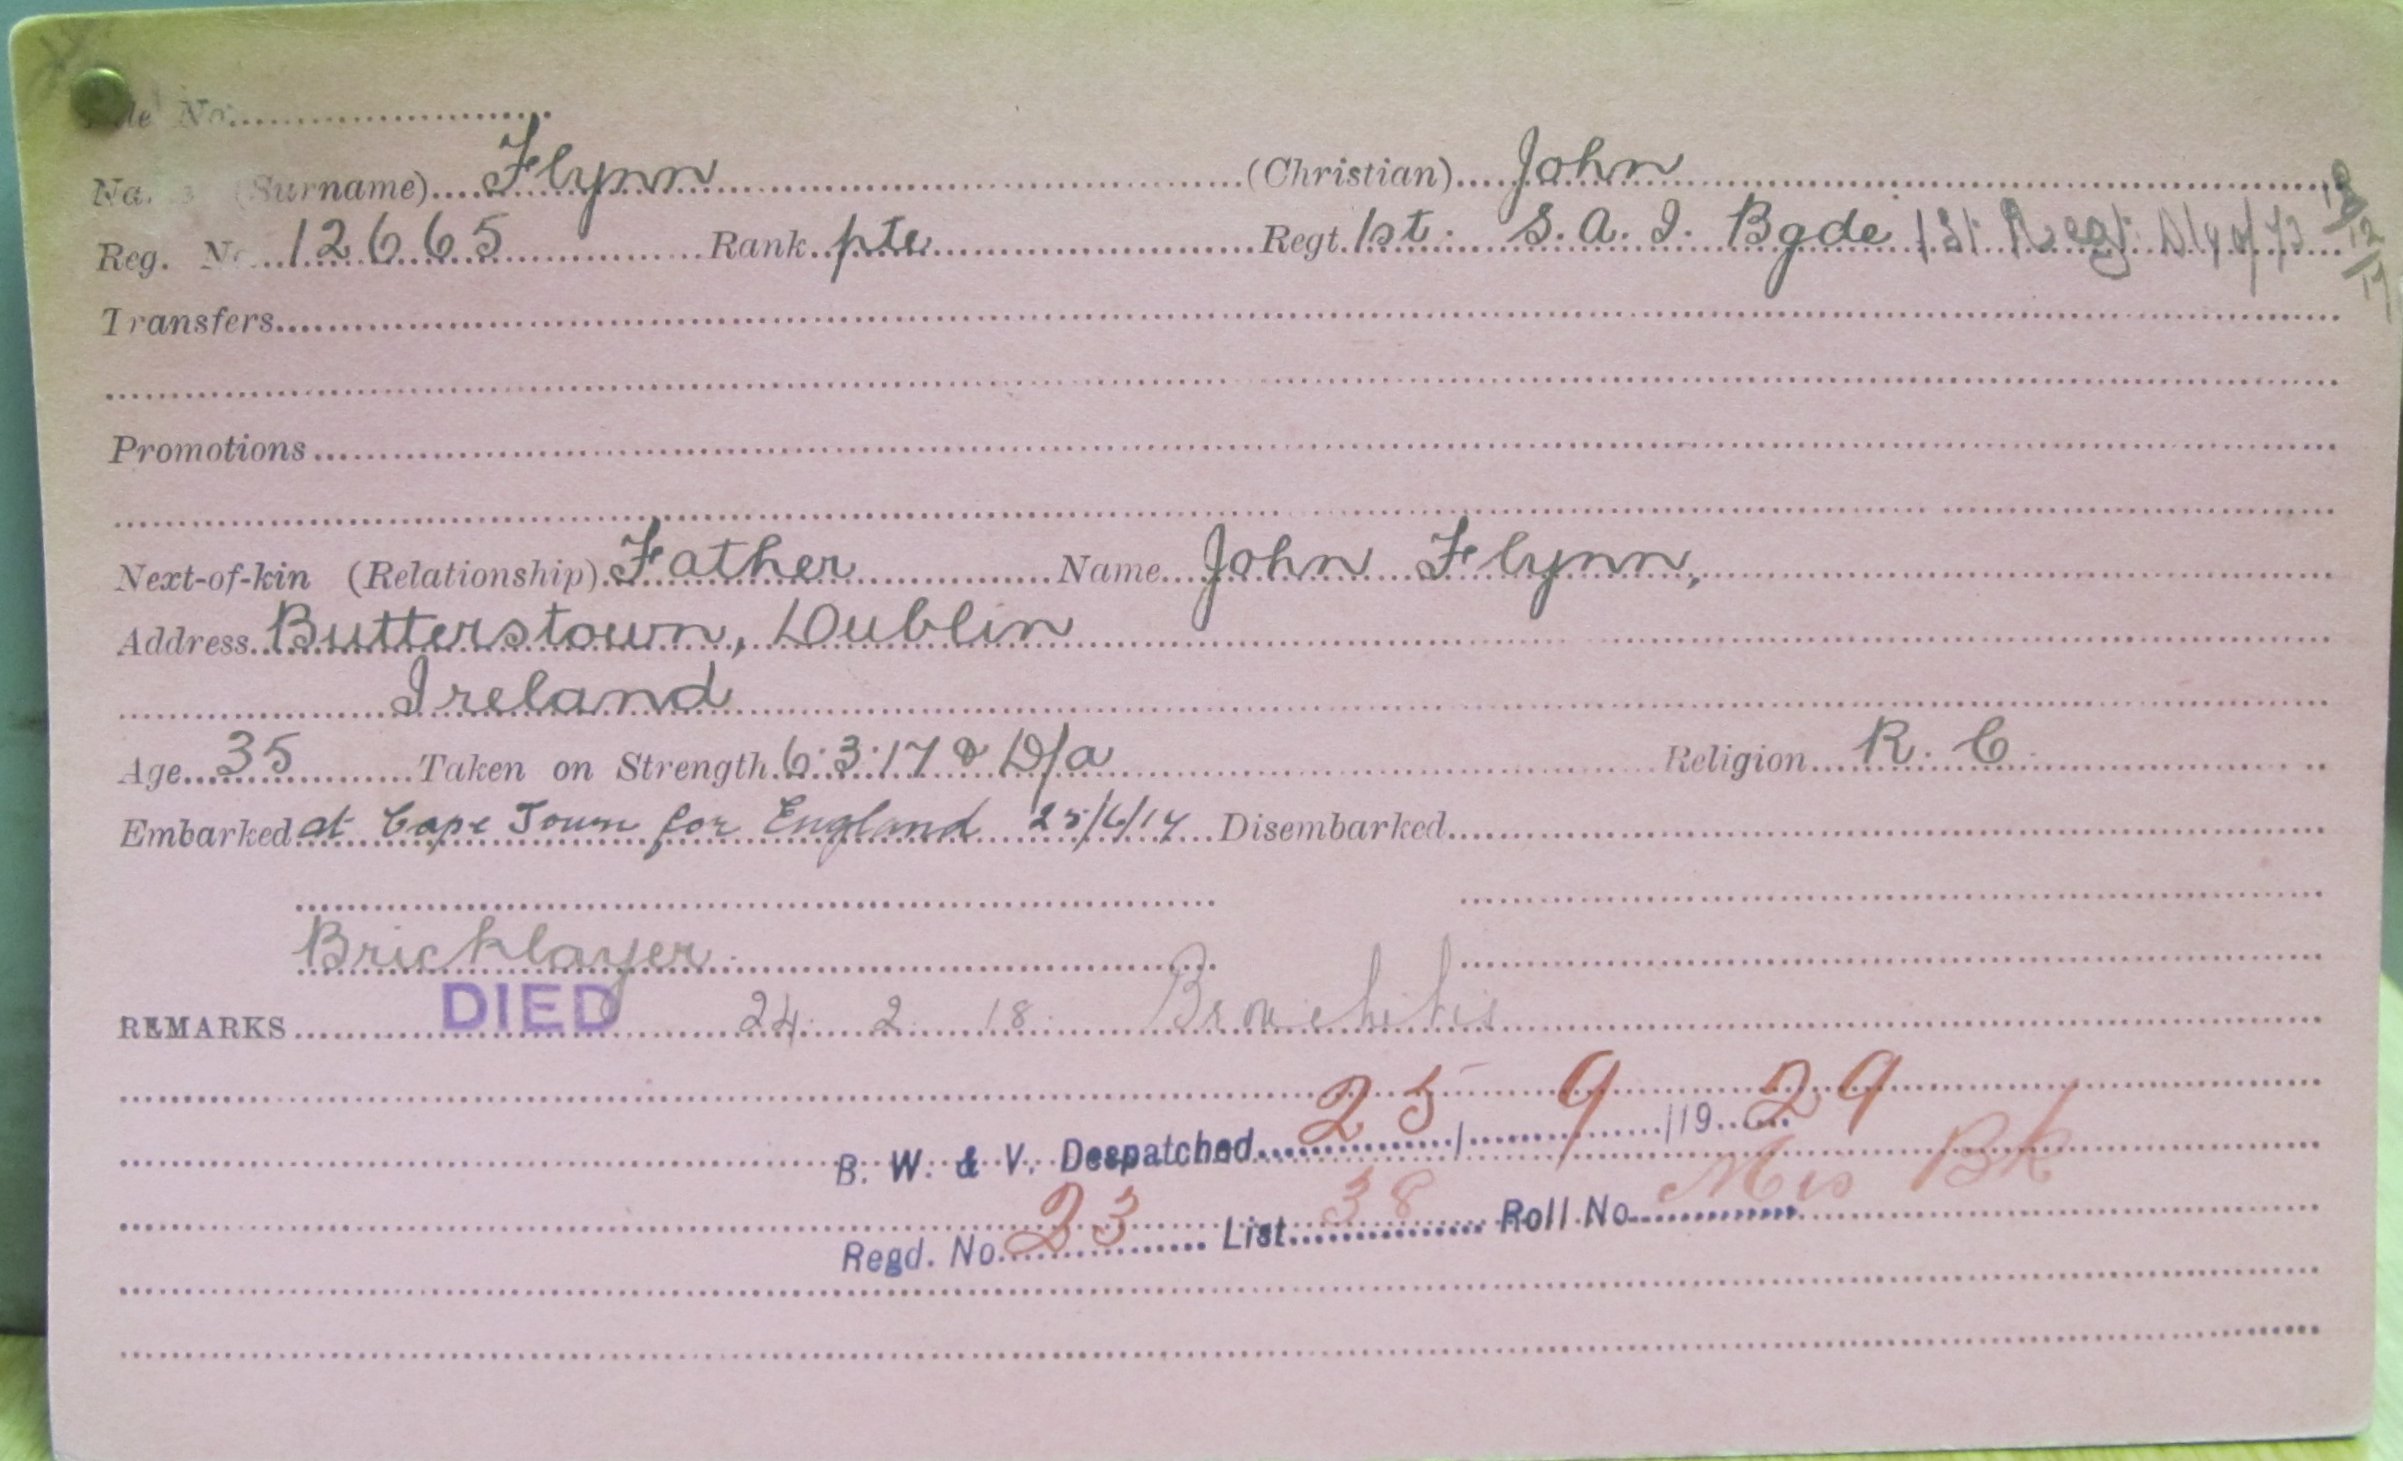 File No.
Name (Surname) Flynn (Christian) John
Reg. No. 12665 Rank pte Regt. 1st. S. A. I. Bgde 1st Regt 12/17
Transfers
Promotions
Next-of-kin (Relationship) Father Name John Flynn,
Address Butterstown, Dublin
Ireland
Age 35 Taken on Strength 6.3.17 D/a Religion R. C.
Embarked at Cape Town for England Disembarked
Bricklayer.
REMARKS DIED 24. 2. 18. Bronchitis
B. W. & V. Despatched 25/9/1929
Regd. No. 23 List 38 Roll No. Mis Bk